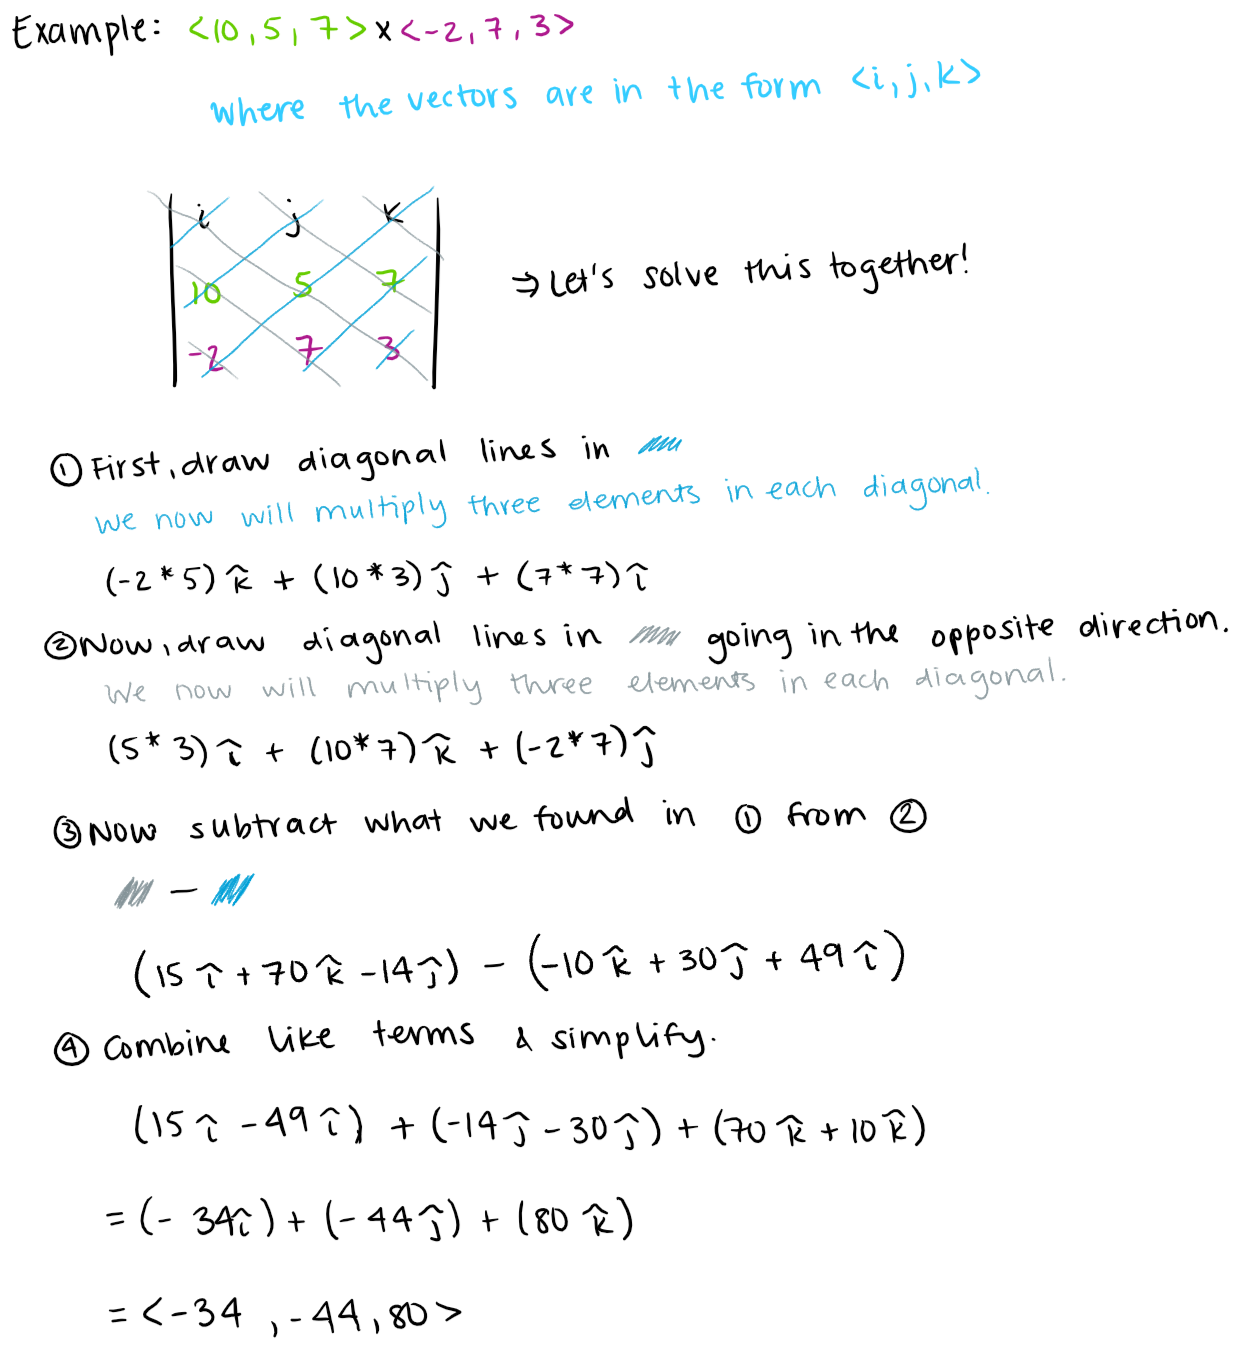 Example: <10, 5, 7> x <-2, 7, 3>
where the vectors are in the form <i, j, k>
i j k
10 5 7
-2 7 3
⇒ Let's solve this together!
① First, draw diagonal lines in
we now will multiply three elements in each diagonal.
(-2 * 5) k̂ + (10 * 3) ĵ + (7 * 7) î
② Now, draw diagonal lines in going in the opposite direction.
We now will multiply three elements in each diagonal.
(5 * 3) î + (10 * 7) k̂ + (-2 * 7) ĵ
③ Now subtract what we found in ① from ②
—
(15 î + 70 k̂ - 14 ĵ) - (-10 k̂ + 30 ĵ + 49 î)
④ Combine like terms & simplify.
(15 î - 49 î) + (-14 ĵ - 30 ĵ) + (70 k̂ + 10 k̂)
= (- 34î) + (- 44 ĵ) + (80 k̂)
= <-34, -44, 80>